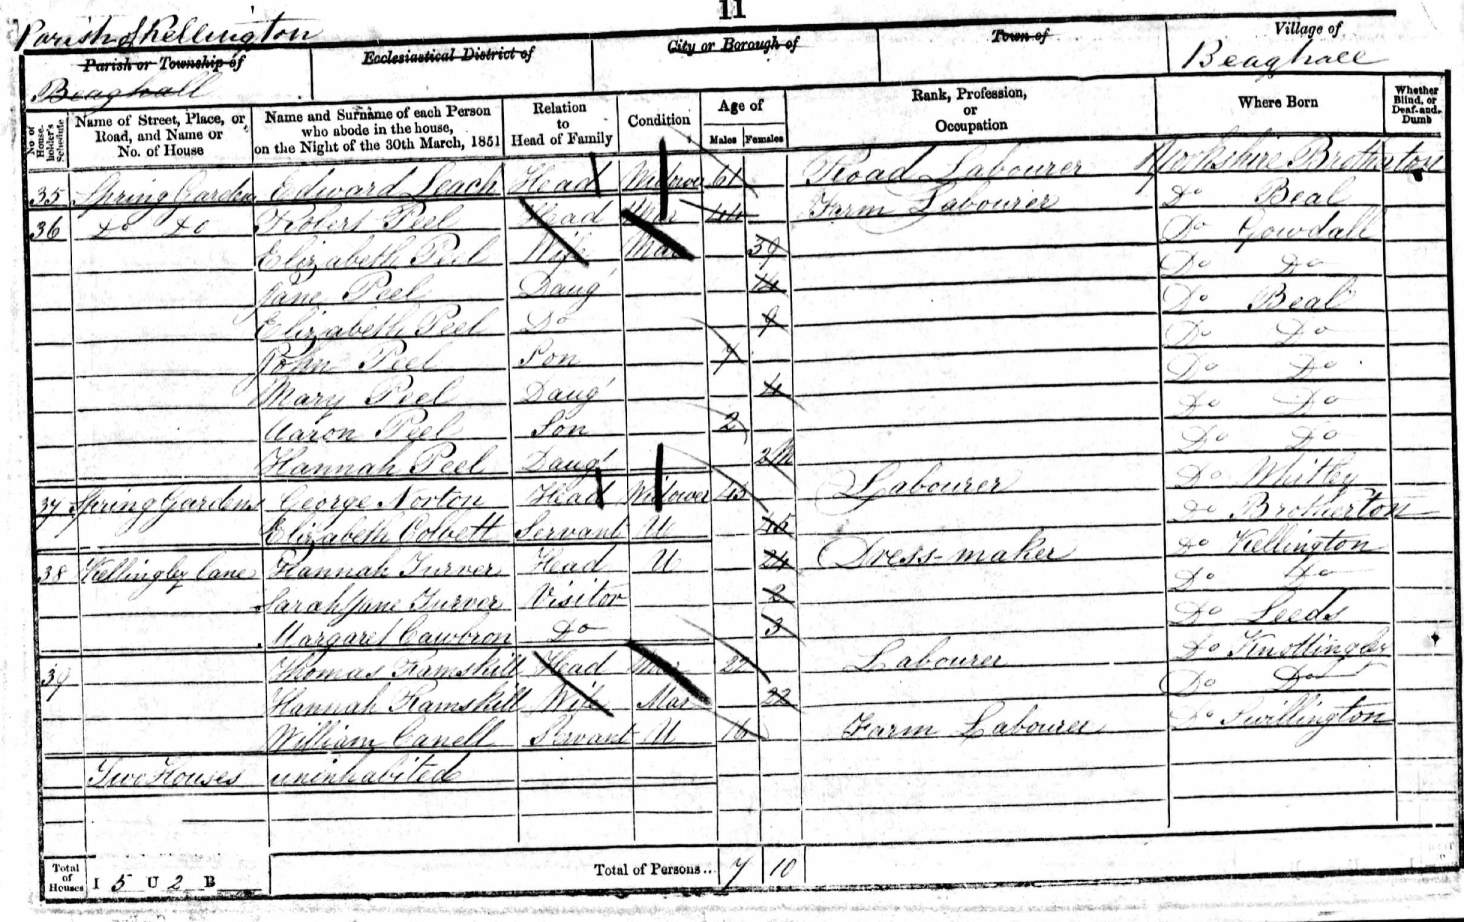 11
Parish of Kellington
Parish or Township of
Ecclesiastical District of
City or Borough of
Town of
Village of
Beaghall
Beaghall
No. of House-holder's Schedule
Name of Street, Place, or Road, and Name or No. of House
Name and Surname of each Person who abode in the house, on the Night of the 30th March, 1851
Relation to Head of Family
Condition
Age of
Males Females
Rank, Profession, or Occupation
Where Born
Whether Blind, or Deaf-and-Dumb
35 Spring Garden Edward Leach Head Widower 61 Road Labourer Yorkshire Brotherton
36 Do Do Robert Peel Head Mar 44 Farm Labourer Do Beal
Elizabeth Peel Wife Mar 39 Do Gowdall
Jane Peel Daug Do Do
Elizabeth Peel Do 9 Do Beal
John Peel Son 7 Do Do
Mary Peel Daug 4 Do Do
Aaron Peel Son 2 Do Do
Hannah Peel Daug 2M Do Do
37 Spring Gardens George Norton Head Widower 43 Labourer Do Whitley
Elizabeth Colbett Servant U 45 Do Brotherton
38 Kellingley Lane Hannah Turver Head U 24 Dress-maker Do Kellington
Sarah Jane Turver Visitor Do Do
Margaret Cawbron Do 3 Do Leeds
39 Thomas Ramskill Head Mar Labourer Do Knottingley
Hannah Ramskill Wife Mar 22 Do Do
William Canell Servant U 16 Farm Labourer Do Swillington
Two Houses uninhabited
Total of Houses I 5 U 2 B
Total of Persons.. 7 10